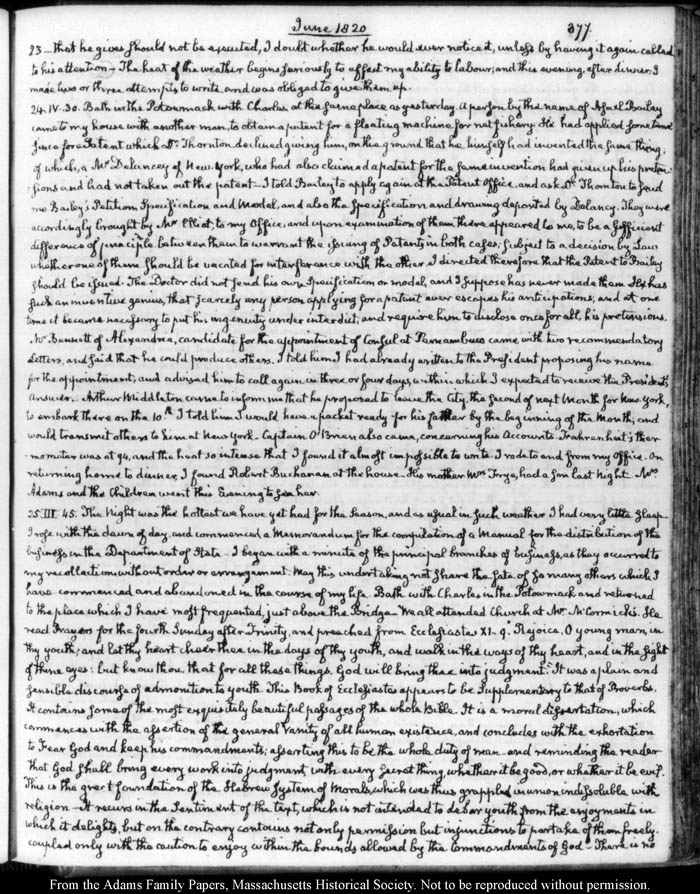 June 1820
377.
23 _ that he gives should not be executed, I doubt whether he would ever notice it, unless by having it again called
to his attention _ The heat of the weather begins seriously to affect my ability to labour; and this evening, after dinner, I
made two or three attempts to write and was obliged to give them up.
24. IV. 30. Bath in the Potowmack with Charles, at the same place as yesterday. A person by the name of Bailey
came to my house with another man, to obtain a patent for a floating machine for net fishery. He had applied some time
since for a Patent which Dr. Thornton declined giving him, on the ground that he himself had invented the same thing;
of which, a Mr Delancey of New-York, who had also claimed a patent for the same invention had given up his preten-
sions and had not taken out the patent _ I told Bailey to apply again at the Patent Office, and ask Dr Thornton to send
me Bailey's Petition, Specification and Model, and also the Specification and drawing deposited by Delancy. They were
accordingly brought by Mr Elliot, to my Office, and upon examination of them there appeared to me, to be a sufficient
difference of principle between them to warrant the issuing of Patents in both cases; subject to a decision by Law
whether one of them should be vacated for interference with the other. I directed therefore that the Patent to Bailey
should be issued. The Doctor did not send his own Specification or model, and I suppose has never made them. He has
such an inventive genius, that scarcely any person applying for a patent ever escapes his anticipations; and at one
time it became necessary to put his ingenuity under interdict, and require him to disclose once for all, his pretensions.
Mr Bennett of Alexandria, candidate for the appointment of Consul at Pernambuco came with two recommendatory
Letters, and said that he could produce others. I told him I had already written to the President proposing his name
for the appointment; and advised him to call again in three or four days, within which I expected to receive the President's
answer. Arthur Middleton came to inform me that he proposed to leave the City, the second of next Month for New-York,
to embark there on the 10th. I told him I would have a packet ready for his father by the beginning of the Month; and
would transmit others to him at New York _ Captain O'Brien also came, concerning his Accounts. Fahrenheit's ther-
-mometer was at 94, and the heat so intense that I found it almost impossible to write. I rode to and from my Office. On
returning home to dinner, I found Robert Buchanan at the house. His mother Mrs Frye, had a son last Night. Mrs
Adams and the Children went this Evening to see her.
25. III. 45. The Night was the hottest we have yet had for the Season, and as usual in such weather I had very little sleep _
I rose with the dawn of day, and commenced a Memorandum for the compilation of a Manual for the distribution of the
business in the Department of State _ I began with a minute of the principal branches of business, as they occurred to
my recollection without order or arrangement. May this undertaking not share the fate of so many others which I
have commenced and abandoned in the course of my life. Bath with Charles in the Potowmack and returned
to the place which I have most frequented, just above the Bridge _ We all attended Church at Mr McCormick's. He
read Prayers for the fourth Sunday after Trinity, and preached from Ecclesiastes XI. 9. "Rejoice, O young man, in
thy youth; and let thy heart cheer thee in the days of thy youth, and walk in the ways of thy heart, and in the sight
of thine eyes: but know thou, that for all these things, God will bring thee into judgment." It was a plain and
sensible discourse of admonition to youth. This Book of Ecclesiastes appears to be Supplementary to that of Proverbs.
It contains some of the most exquisitely beautiful passages of the whole Bible. It is a moral dissertation, which
commences with the assertion of the general Vanity of all human existence, and concludes with the exhortation
to Fear God and keep his commandments; asserting this to be the whole duty of man _ and reminding the reader
that God shall bring every work into judgment, with every secret thing, whether it be good, or whether it be evil.
This is the great foundation of the Hebrew System of Morals, which was thus grappled in union indissoluble with
religion _ It recurs in the Sentiment of the text, which is not intended to debar youth from the enjoyments in
which it delights, but on the contrary contains not only permission but injunctions to partake of them freely.
coupled only with the caution to enjoy within the bounds allowed by the commandments of God _ There is no
From the Adams Family Papers, Massachusetts Historical Society. Not to be reproduced without permission.